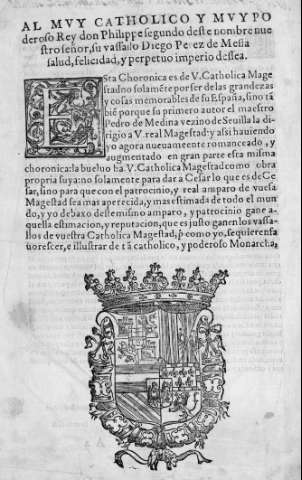 AL MVY CATHOLICO Y MVY PO
deroso Rey don Philippe segundo deste nombre nue
stro señor, su vassallo Diego Perez de Mesia
salud, felicidad, y perpetuo imperio dessea.
ESta Choronica es de V. Catholica Mage
stad no solamẽte por ser de las grandezas
y cosas memorables de su España, sino tã
bié porque su primero autor el maestro
Pedro de Medina vezino de Seuilla la di-
rigio a V. real Magestad: y assi hauiendo
yo agora nueuamente romançado, y
augmentado en gran parte esta misma
choronica: la bueluo ha. V. Catholica Magestad como obra
propria suya: no solamente para dar a Cesar lo que es de Ce
sar, sino para que con el patrocinio, y real amparo de vuesa
Magestad sea mas apetecida, y mas estimada de todo el mun
do, y yo debaxo deste mismo amparo, y patrocinio gane a-
quella estimacion, y reputacion, que es justo ganen los vassa-
llos de vuestra Catholica Magestad, q̃ como yo, se quieren fa
uorescer, e illustrar de tã catholico, y poderoso Monarcha,